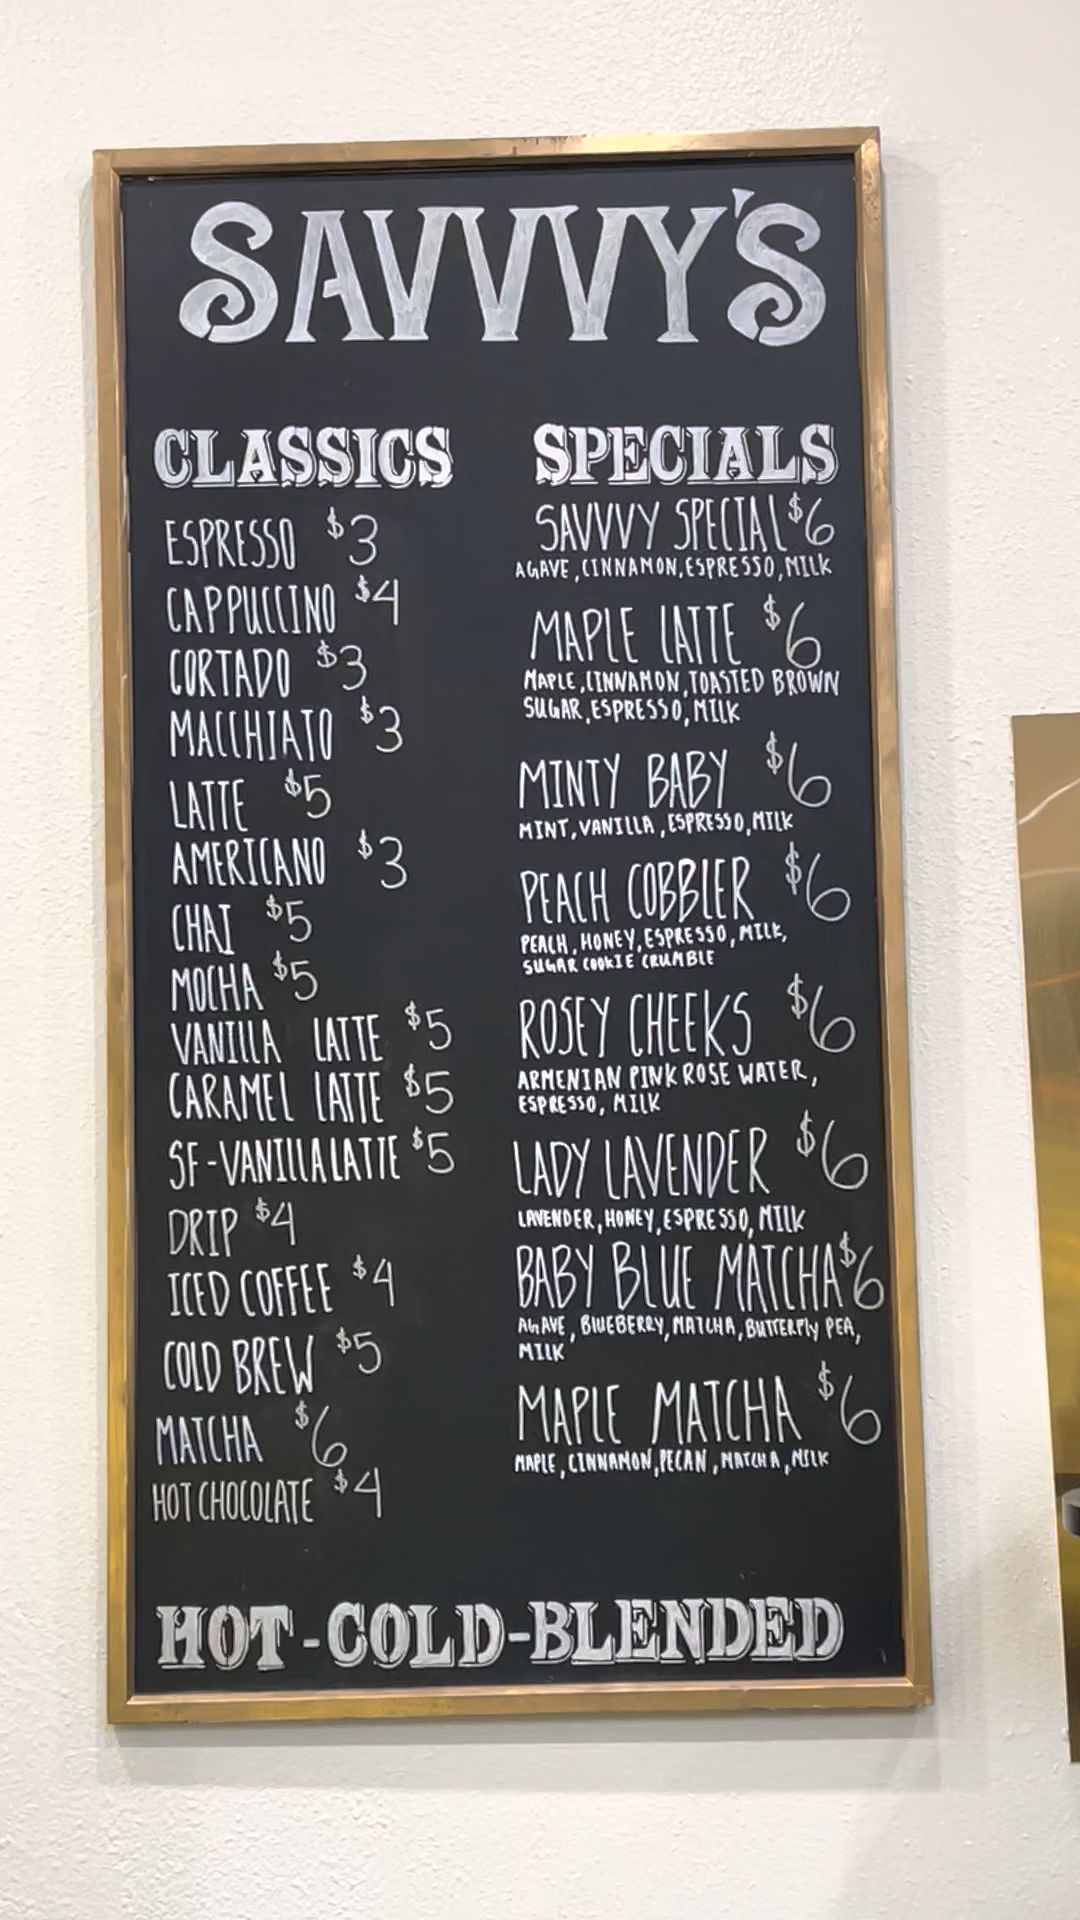 SAVVVY'S
CLASSICS
ESPRESSO $3
CAPPUCCINO $4
CORTADO $3
MACCHIATO $3
LATTE $5
AMERICANO $3
CHAI $5
MOCHA $5
VANILLA LATTE $5
CARAMEL LATTE $5
SF-VANILLA LATTE $5
DRIP $4
ICED COFFEE $4
COLD BREW $5
MATCHA $6
HOT CHOCOLATE $4
SPECIALS
SAVVVY SPECIAL $6
AGAVE, CINNAMON, ESPRESSO, MILK
MAPLE LATTE $6
MAPLE, CINNAMON, TOASTED BROWN
SUGAR, ESPRESSO, MILK
MINTY BABY $6
MINT, VANILLA, ESPRESSO, MILK
PEACH COBBLER $6
PEACH, HONEY, ESPRESSO, MILK,
SUGAR COOKIE CRUMBLE
ROSEY CHEEKS $6
ARMENIAN PINK ROSE WATER,
ESPRESSO, MILK
LADY LAVENDER $6
LAVENDER, HONEY, ESPRESSO, MILK
BABY BLUE MATCHA $6
AGAVE, BLUEBERRY, MATCHA, BUTTERFLY PEA,
MILK
MAPLE MATCHA $6
MAPLE, CINNAMON, PECAN, MATCHA, MILK
HOT-COLD-BLENDED